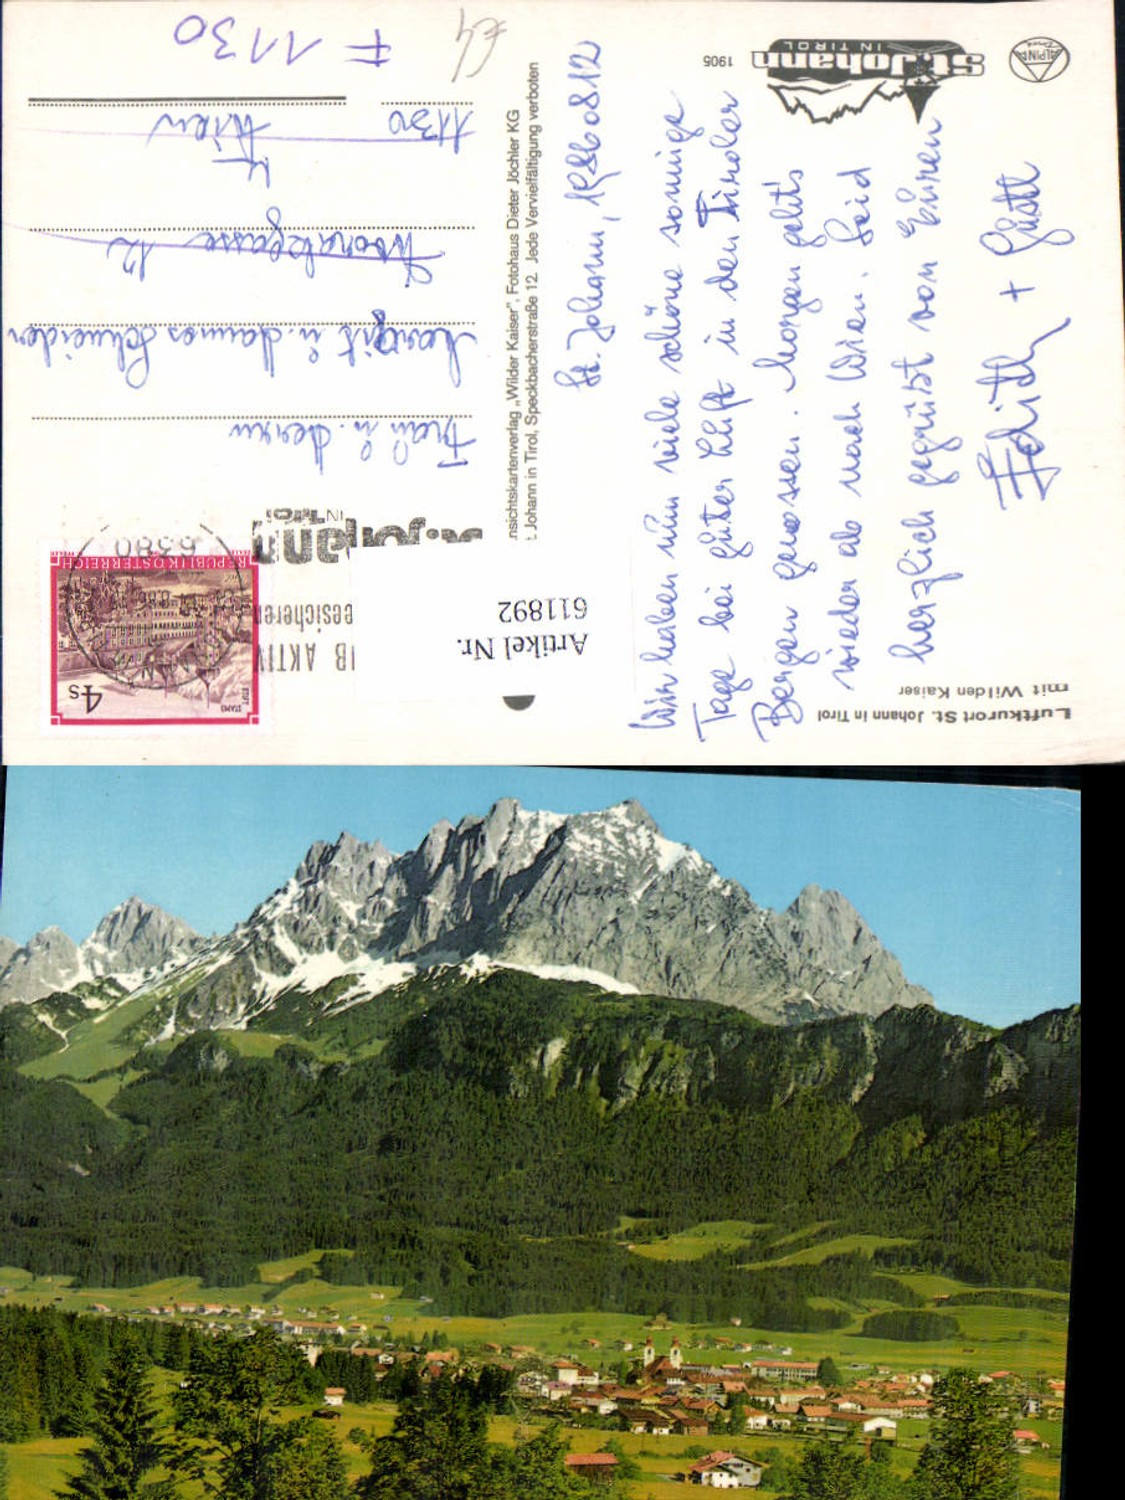 Luftkurort St. Johann in Tirol
mit Wilden Kaiser
St. Johann
IN TIROL
1905
ALPINA
Druck
St. Johann, 1986 08 12
Wir haben nun viele schöne sonnige
Tage bei guter Luft in den Tiroler
Bergen genossen. Morgen geht's
wieder ab nach Wien. Seid
herzlich gegrüßt von Euren
Edith + Gustl
nsichtskartenverlag „Wilder Kaiser", Fotohaus Dieter Jöchler KG
t. Johann in Tirol, Speckbacherstraße 12. Jede Vervielfältigung verboten
Artikel Nr.
611892
REPUBLIK ÖSTERREICH
4 S
STIFT
STAMS
6380
IB AKTIV
eesicheren
IN Tirol
Frau u. Herrn
Margit u. Hannes Schneider
12
1130 Wien
F 1130